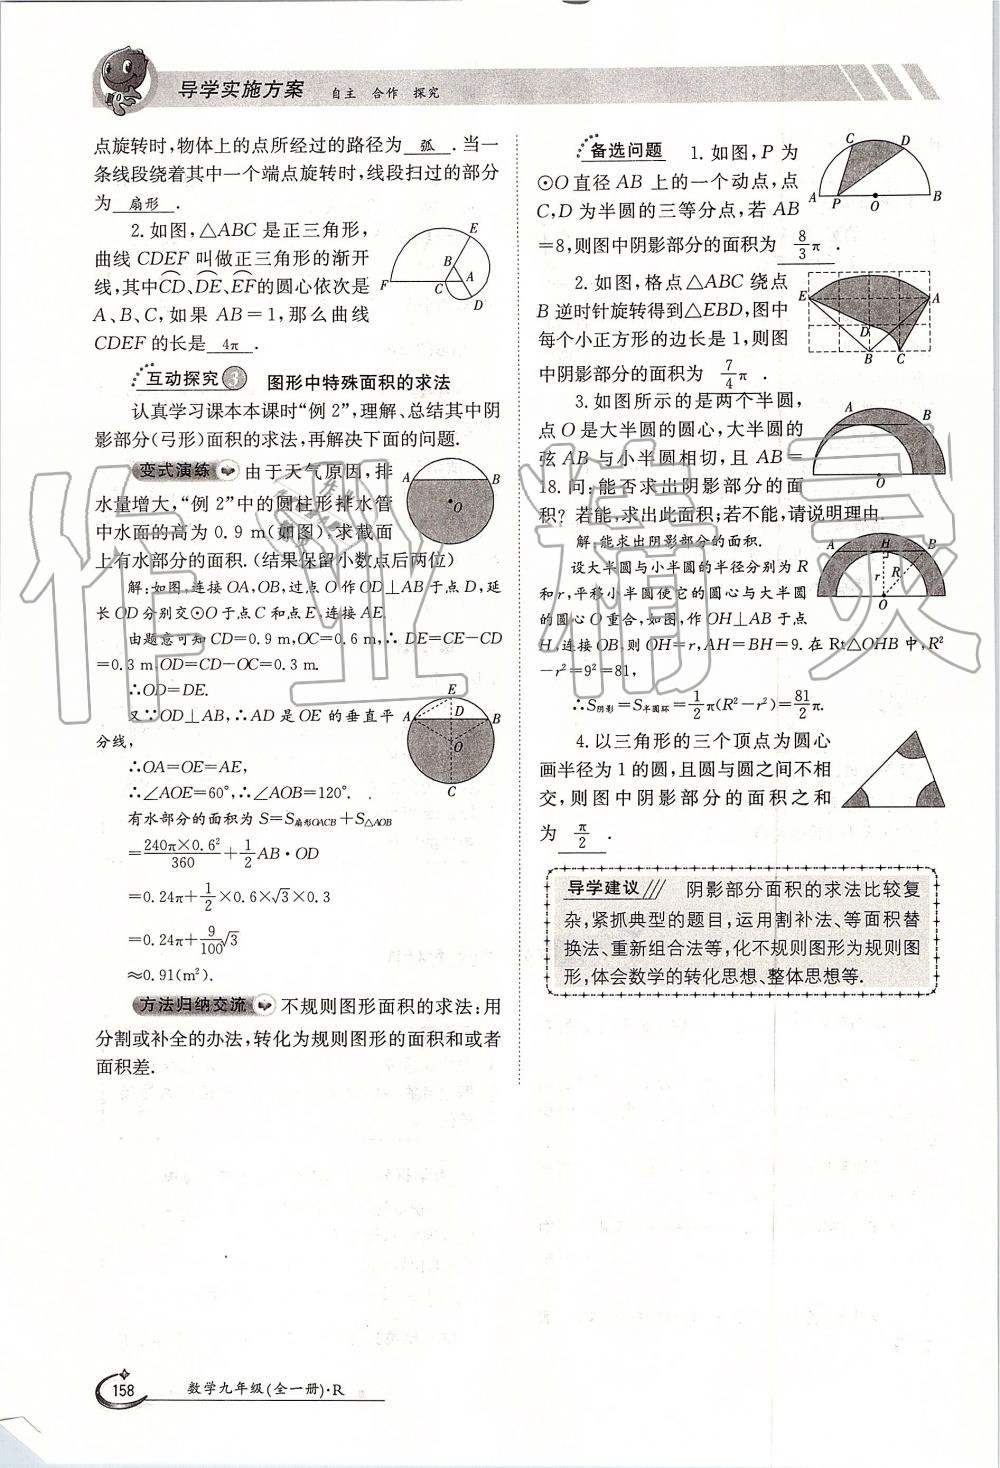 导学实施方案 自主 合作 探究
点旋转时,物体上的点所经过的路径为 弧 .当一
条线段绕着其中一个端点旋转时,线段扫过的部分
为 扇形 .
2.如图,△ABC 是正三角形,
曲线 CDEF 叫做正三角形的渐开
线,其中CD、DE、EF的圆心依次是
A、B、C,如果 AB=1,那么曲线
CDEF 的长是 4π .
E
B
A
F
C
D
互动探究3 图形中特殊面积的求法
认真学习课本本课时“例 2”,理解、总结其中阴
影部分(弓形)面积的求法,再解决下面的问题.
变式演练 由于天气原因,排
水量增大,“例 2”中的圆柱形排水管
中水面的高为 0.9 m(如图),求截面
上有水部分的面积.(结果保留小数点后两位)
A
B
O
解:如图,连接 OA,OB,过点 O 作 OD⊥AB 于点 D,延
长 OD 分别交⊙O 于点 C 和点 E,连接 AE.
由题意可知 CD=0.9 m,OC=0.6 m,∴ DE=CE-CD
=0.3 m,OD=CD-OC=0.3 m.
∴OD=DE.
又∵OD⊥AB,∴AD 是 OE 的垂直平
分线,
∴OA=OE=AE,
∴∠AOE=60°,∴∠AOB=120°.
有水部分的面积为 S=S扇形OACB+S△AOB
=240π×0.6²/360+1/2AB·OD
=0.24π+1/2×0.6×√3×0.3
=0.24π+9/100√3
≈0.91(m²).
E
A
D
B
O
C
方法归纳交流 不规则图形面积的求法:用
分割或补全的办法,转化为规则图形的面积和或者
面积差.
备选问题 1.如图,P 为
⊙O 直径 AB 上的一个动点,点
C,D 为半圆的三等分点,若 AB
=8,则图中阴影部分的面积为 8/3π .
C
D
A
P
O
B
2.如图,格点△ABC 绕点
B 逆时针旋转得到△EBD,图中
每个小正方形的边长是 1,则图
中阴影部分的面积为 7/4π .
E
A
D
B
C
3.如图所示的是两个半圆,
点 O 是大半圆的圆心,大半圆的
弦 AB 与小半圆相切,且 AB=
18.问:能否求出阴影部分的面
积?若能,求出此面积;若不能,请说明理由.
A
B
O
解:能求出阴影部分的面积.
设大半圆与小半圆的半径分别为 R
和 r,平移小半圆使它的圆心与大半圆
的圆心 O 重合,如图,作 OH⊥AB 于点
H,连接 OB,则 OH=r,AH=BH=9.在 Rt△OHB 中,R²
-r²=9²=81,
∴S阴影=S半圆环=1/2π(R²-r²)=81/2π.
A
H
B
r
R
O
4.以三角形的三个顶点为圆心
画半径为 1 的圆,且圆与圆之间不相
交,则图中阴影部分的面积之和
为 π/2 .
导学建议 阴影部分面积的求法比较复
杂,紧抓典型的题目,运用割补法、等面积替
换法、重新组合法等,化不规则图形为规则图
形,体会数学的转化思想、整体思想等.
作业精灵
158 数学九年级(全一册)·R